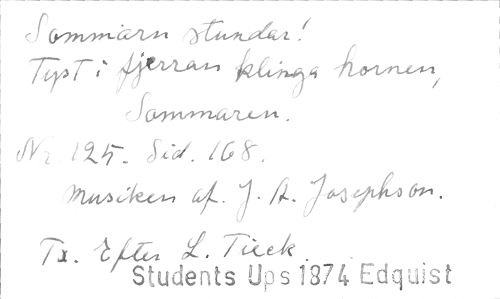 Sommarn stundar!
Tyst i fjerran klinga hornen,
Sommaren.
Nr. 125. Sid. 168.
Musiken af J. A. Josephson.
Tx. Efter L. Tieck.
Students Ups 1874 Edquist